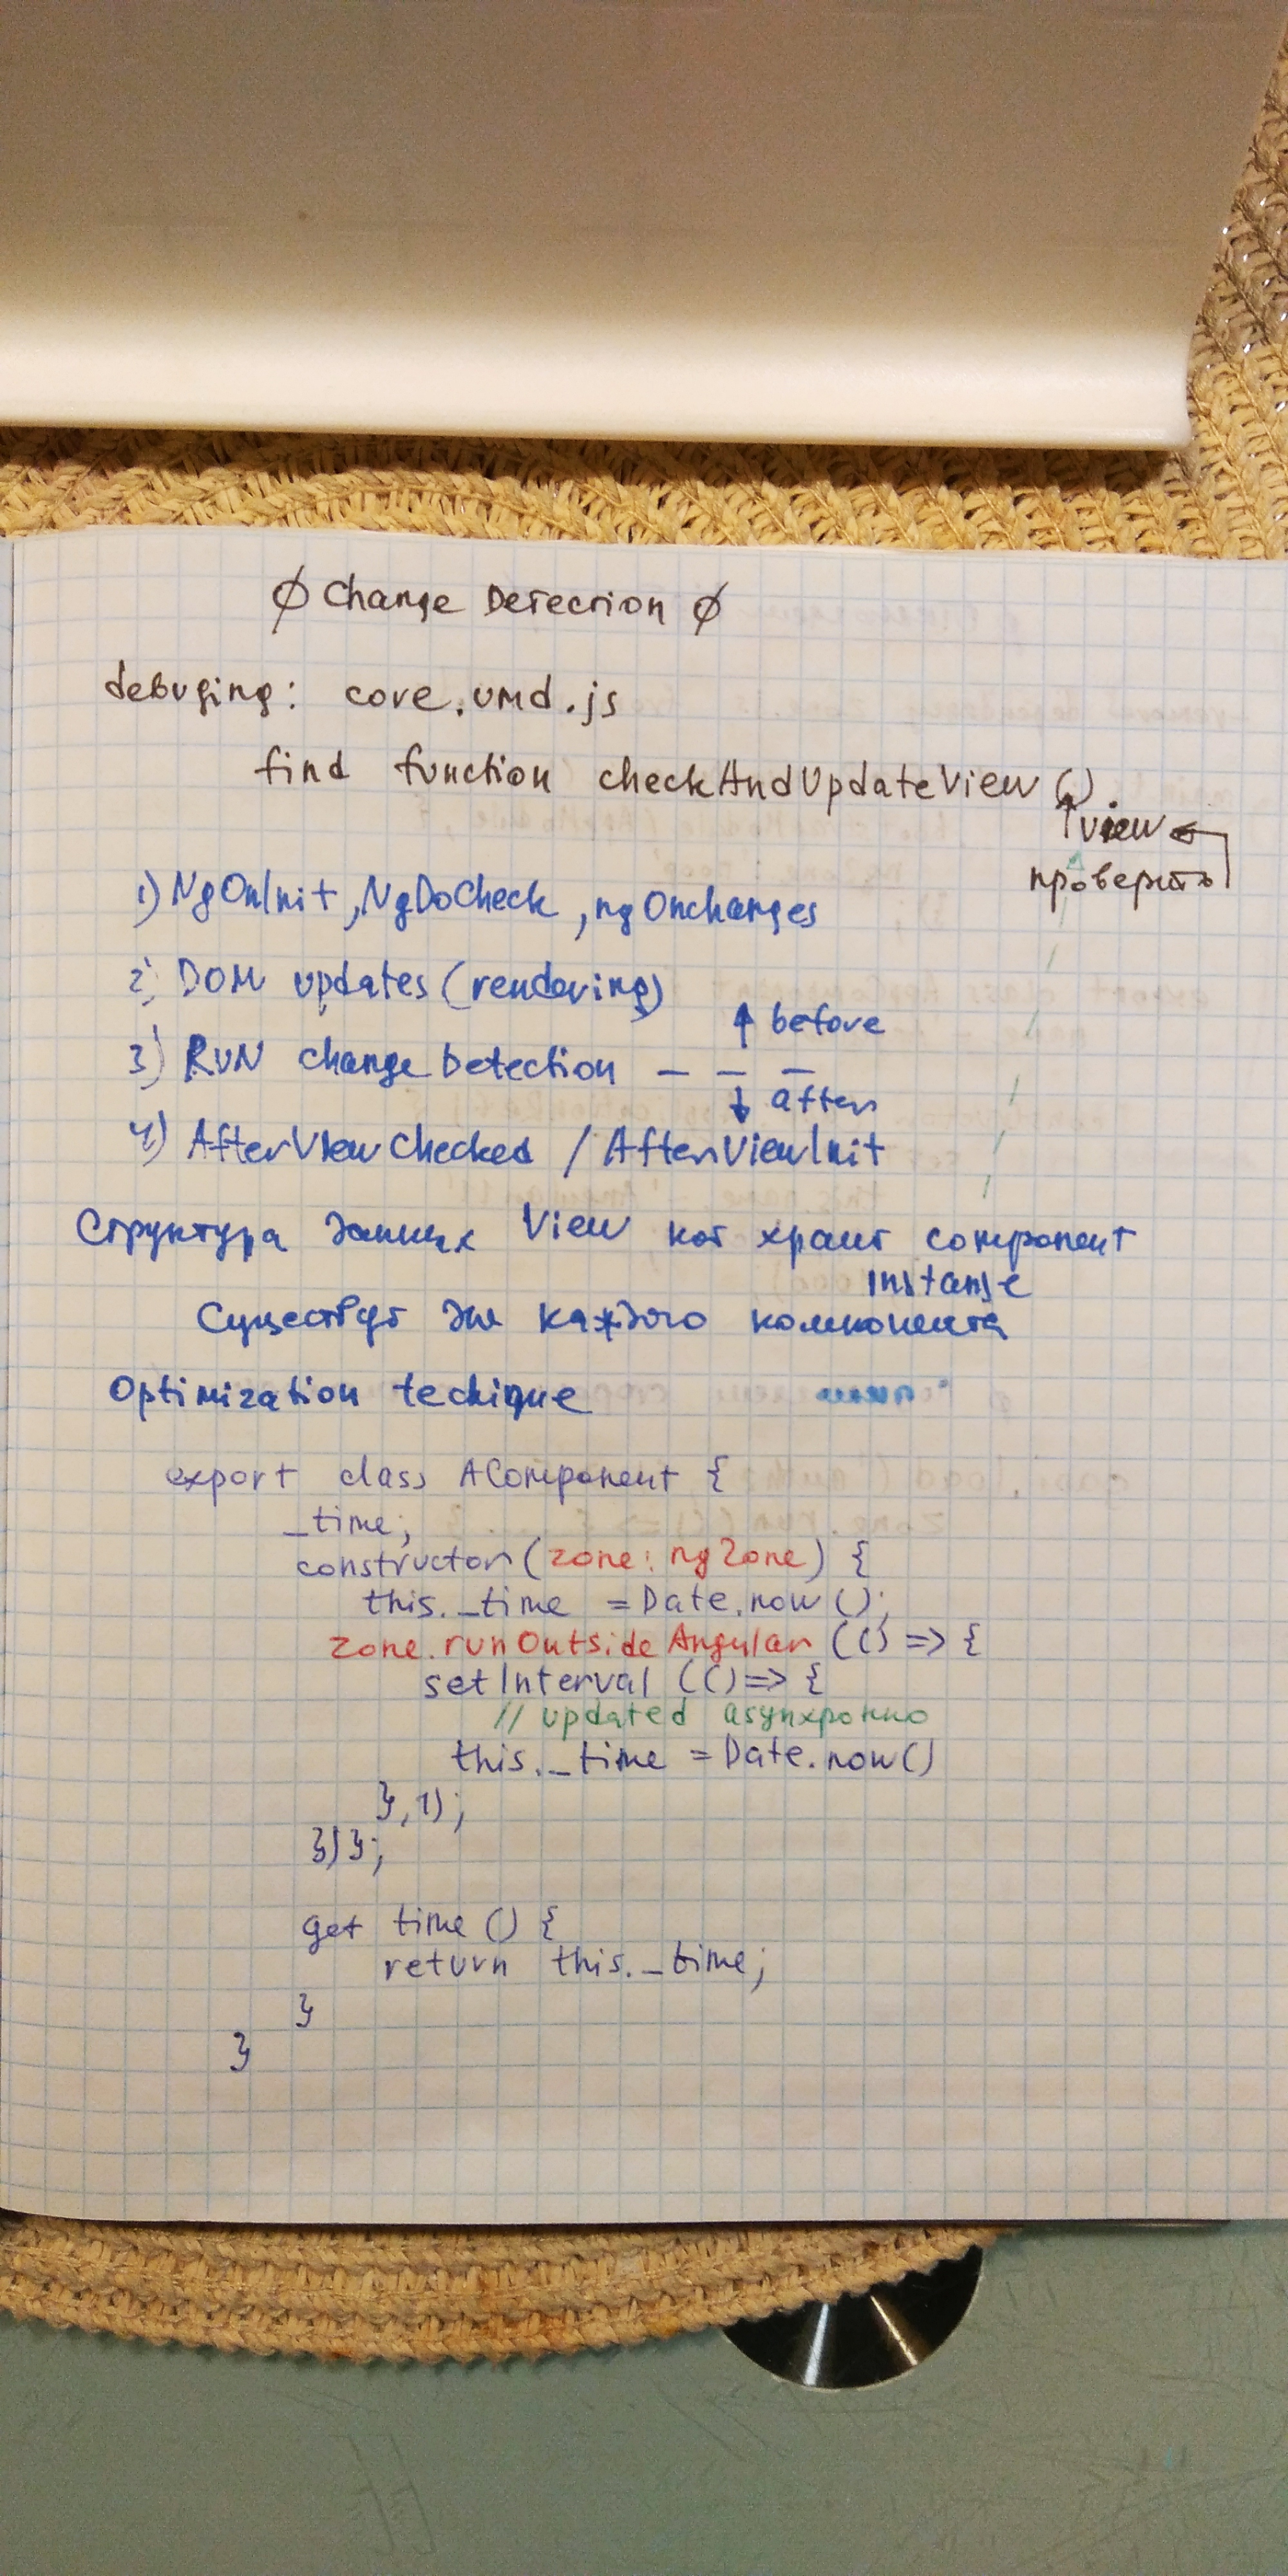 ∅ Change Detection ∅
debuging: core.umd.js
find function checkAndUpdateView().
view
проверить
1) NgOnInit, NgDoCheck, ngOnchanges
2) DOM updates (rendering)
before
3) RUN change Detection — — —
after
4) AfterViewChecked / AfterViewInit
Структура данных View кот хранит component
instanse
Существует для каждого компонента
Optimization techique
export class AComponent {
_time;
constructor(zone: ngZone) {
this._time = Date.now();
zone.runOutsideAngular (() => {
setInterval (() => {
// updated asynхронно
this._time = Date.now()
},1);
})};
get time () {
return this._time;
}
}